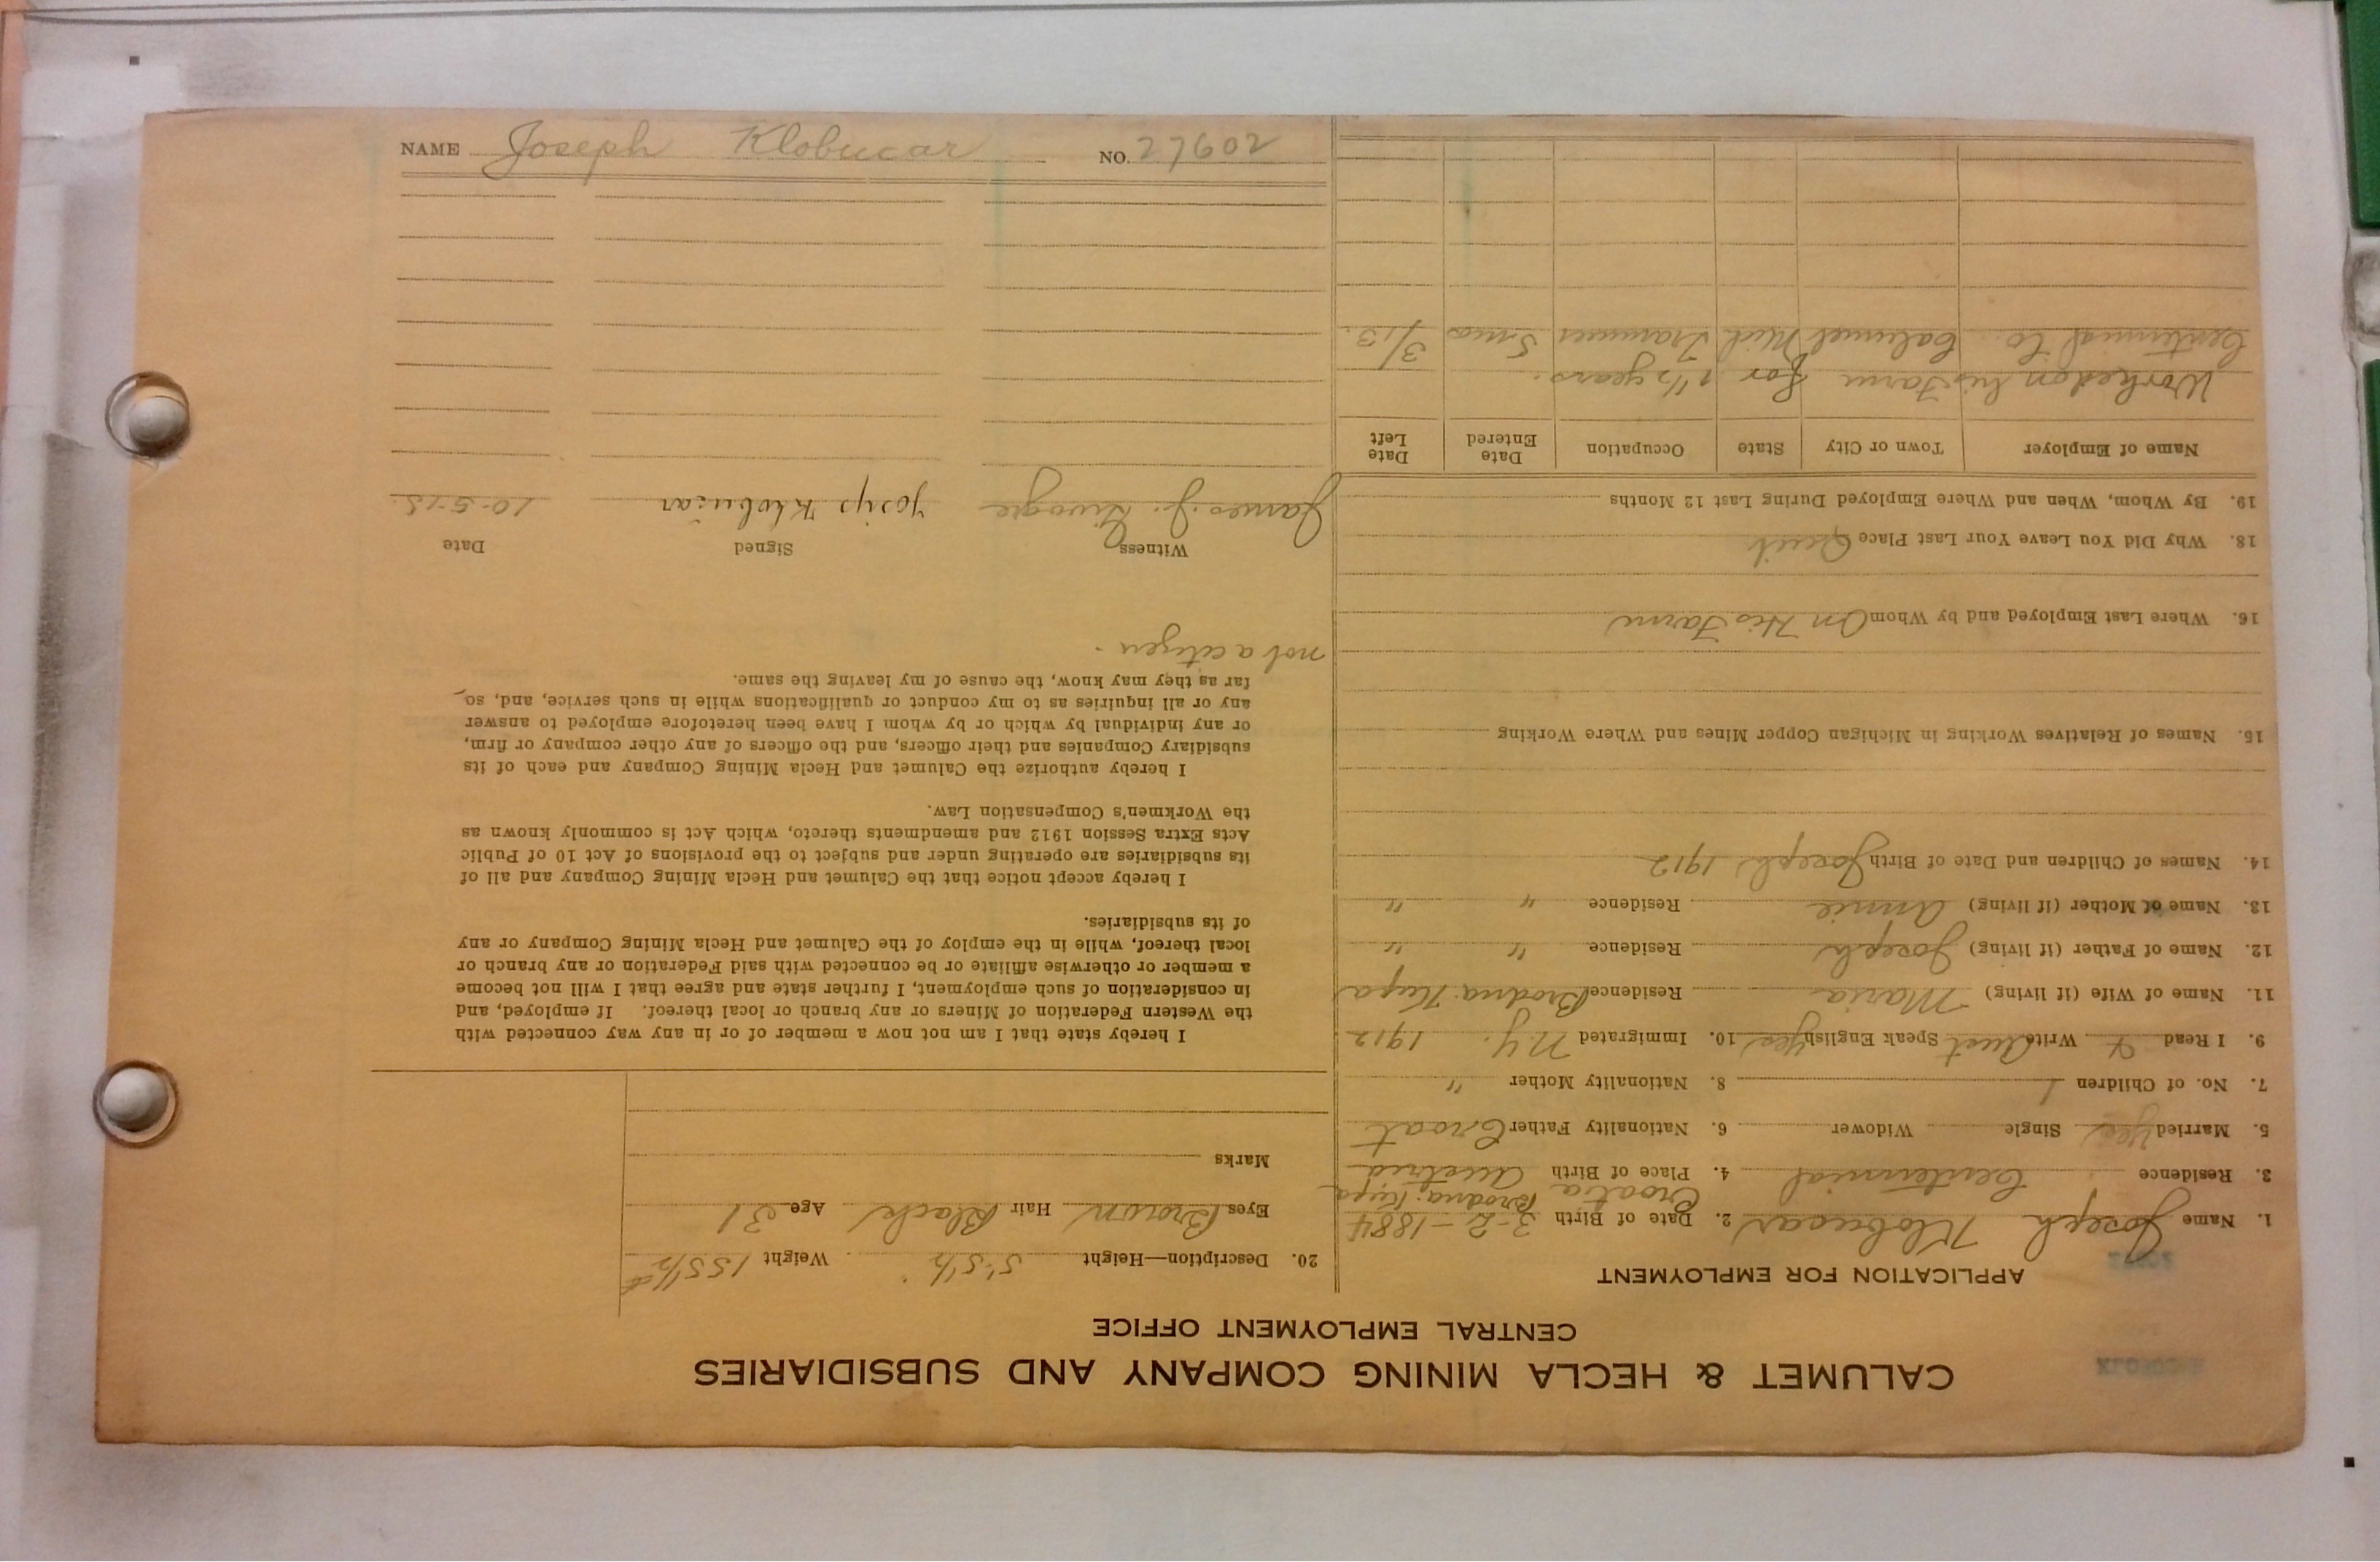 CALUMET & HECLA MINING COMPANY AND SUBSIDIARIES
CENTRAL EMPLOYMENT OFFICE
APPLICATION FOR EMPLOYMENT
1. Name Joseph Klobucar 2. Date of Birth 3-2-1884
Croatia Brodna: Kupa
3. Residence Centennial 4. Place of Birth Austria
5. Married Yes Single Widower 6. Nationality Father Croat
7. No. of Children 1 8. Nationality Mother "
9. I Read & Write Aust Speak English Yes 10. Immigrated N.Y. 1912
11. Name of Wife (if living) Maria Residence Brodna: Kupa
12. Name of Father (if living) Joseph Residence " "
13. Name of Mother (if living) Annie Residence " "
14. Names of Children and Date of Birth Joseph 1912
15. Names of Relatives Working in Michigan Copper Mines and Where Working
16. Where Last Employed and by Whom On His Farm
18. Why Did You Leave Your Last Place Quit
19. By Whom, When and Where Employed During Last 12 Months
Name of Employer Town or City State Occupation Date Entered Date Left
Worked on his Farm for 1 1/2 years.
Centennial Co. Calumet Mich Trammer 5 mos 3/13.
20. Description—Height 5'.5 1/2" Weight 155 1/2 #
Eyes Brown Hair Black Age 31
Marks
I hereby state that I am not now a member of or in any way connected with
the Western Federation of Miners or any branch or local thereof. If employed, and
in consideration of such employment, I further state and agree that I will not become
a member or otherwise affiliate or be connected with said Federation or any branch or
local thereof, while in the employ of the Calumet and Hecla Mining Company or any
of its subsidiaries.
I hereby accept notice that the Calumet and Hecla Mining Company and all of
its subsidiaries are operating under and subject to the provisions of Act 10 of Public
Acts Extra Session 1912 and amendments thereto, which Act is commonly known as
the Workmen's Compensation Law.
I hereby authorize the Calumet and Hecla Mining Company and each of its
subsidiary Companies and their officers, and the officers of any other company or firm,
or any individual by which or by whom I have been heretofore employed to answer
any or all inquiries as to my conduct or qualifications while in such service, and, so
far as they may know, the cause of my leaving the same.
not a citizen.
Witness Signed Date
James J. Josip Klobučar 10-5-15
NAME Joseph Klobucar NO. 27602